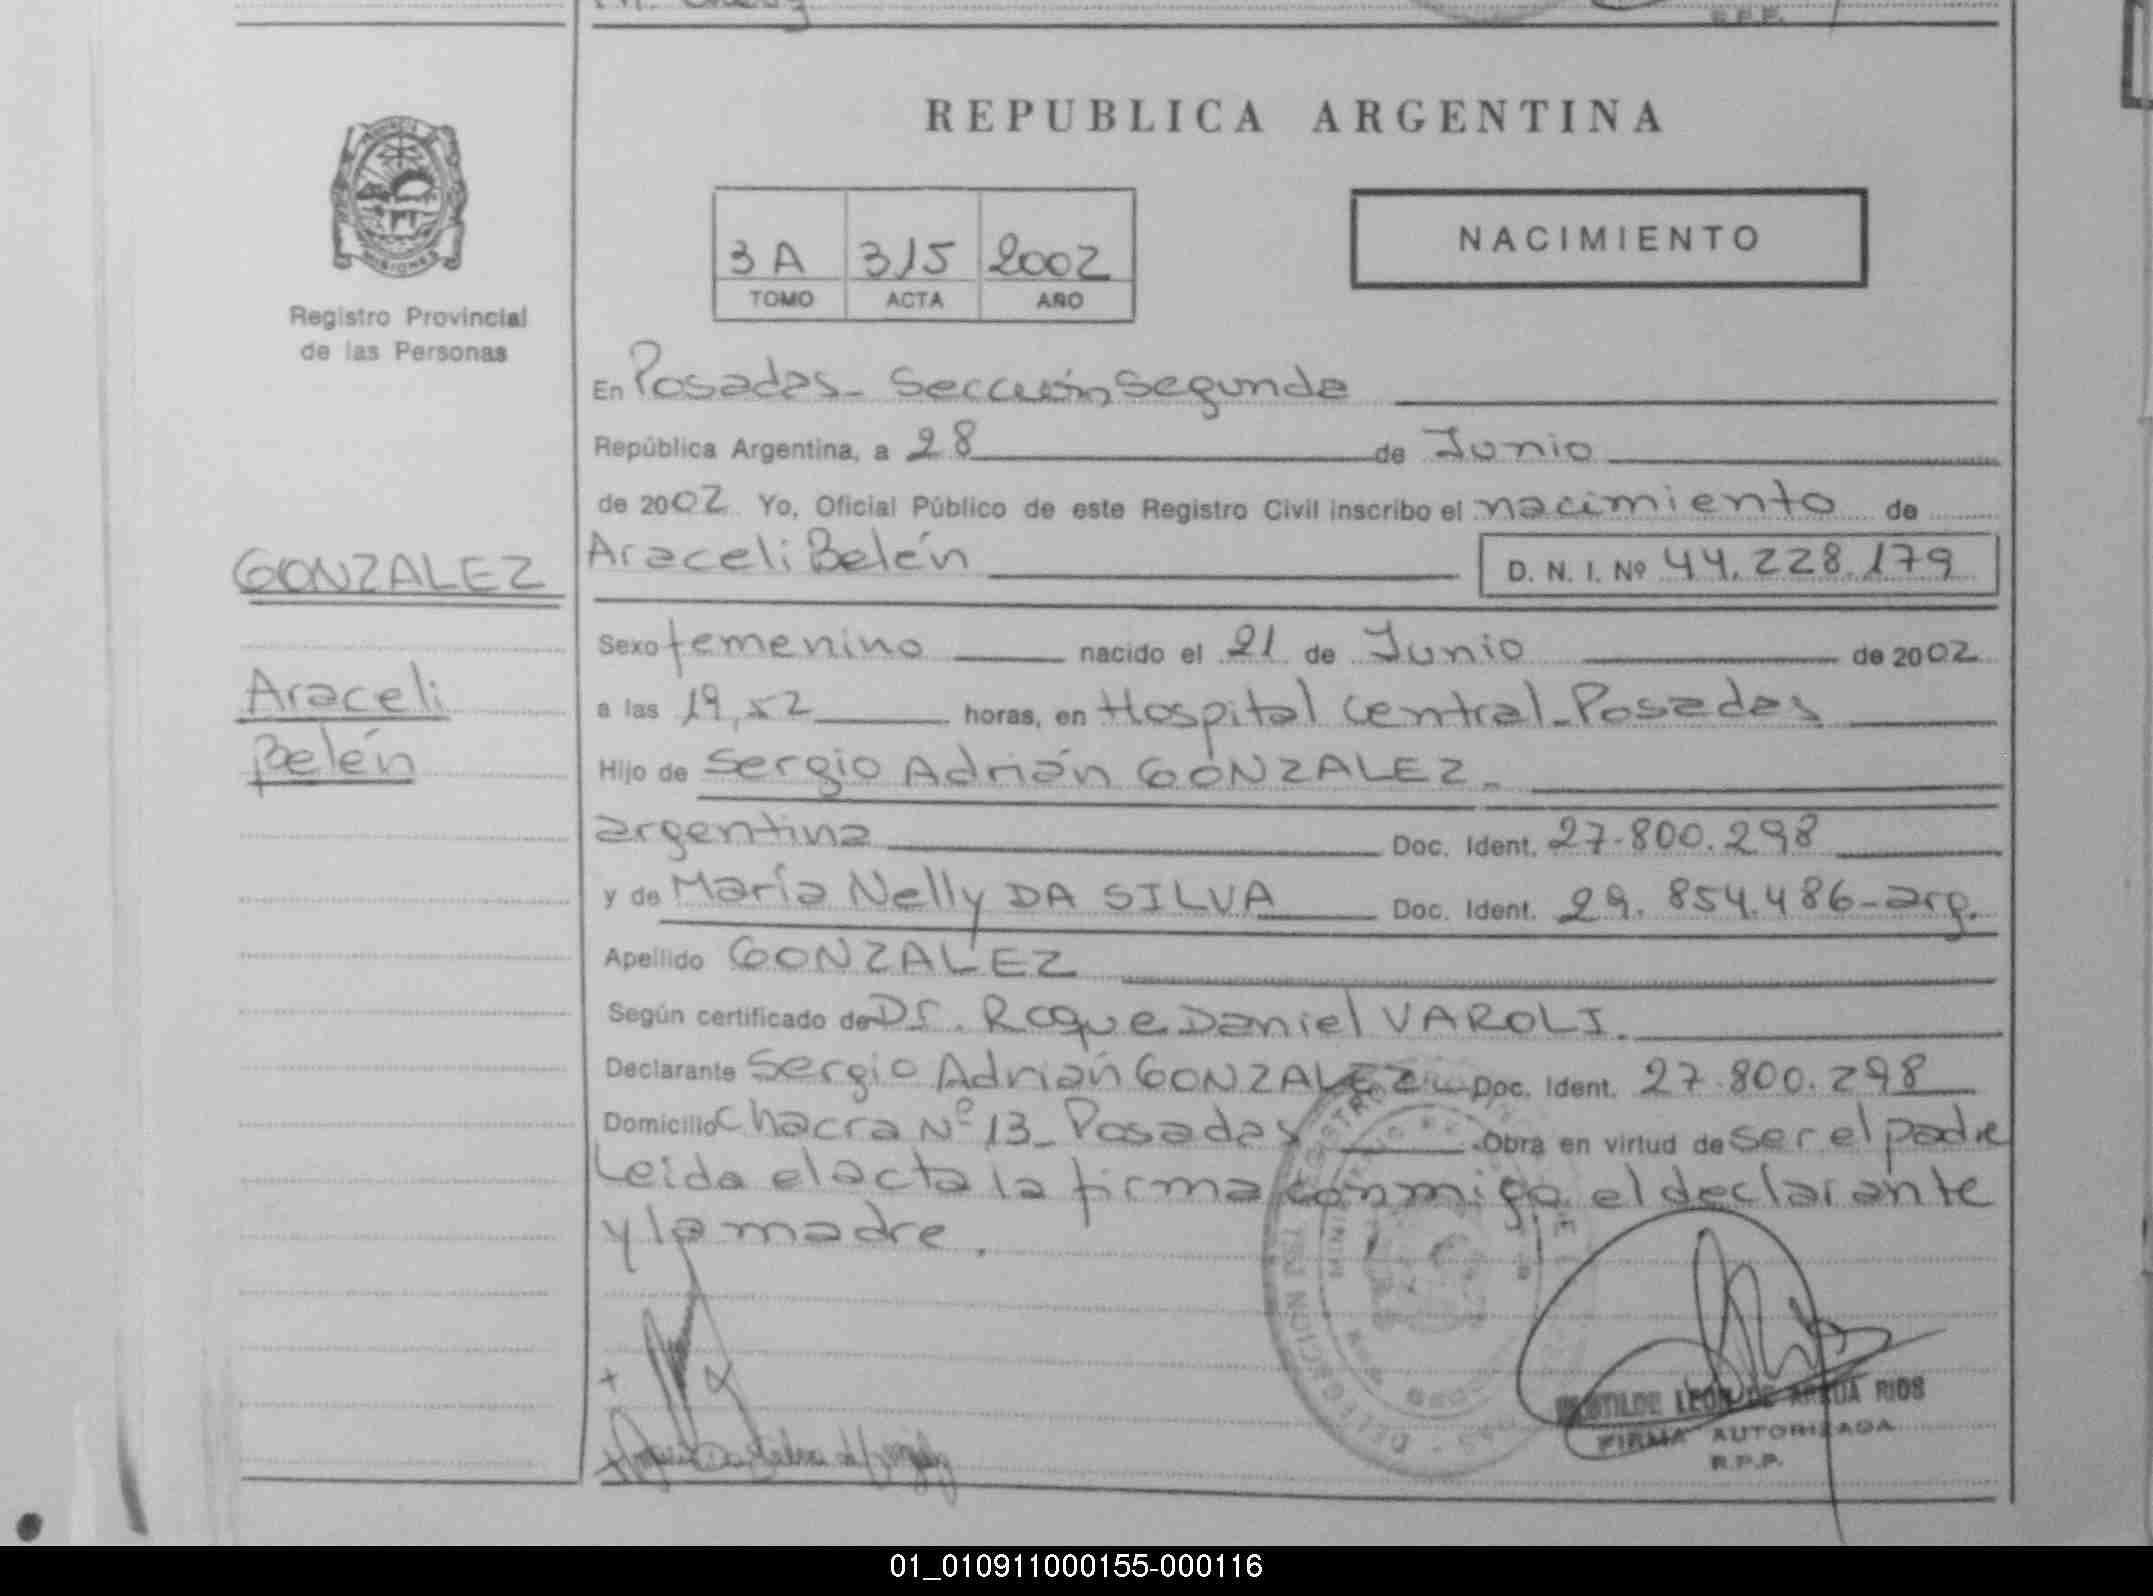 R.P.P.
REPUBLICA ARGENTINA
PROVINCIA
MISIONES
Registro Provincial
de las Personas
3A 315 2002
TOMO ACTA AÑO
NACIMIENTO
En Posadas - Sección Segunda
República Argentina, a 28 de Junio
de 2002 Yo, Oficial Público de este Registro Civil inscribo el nacimiento de
GONZALEZ
Araceli Belén
D. N. I. Nº 44.228.179
Sexo femenino nacido el 21 de Junio de 2002
Araceli
Belén
a las 19,52 horas, en Hospital Central - Posadas
Hijo de Sergio Adrián GONZALEZ -
argentina Doc. Ident. 27.800.298
y de María Nelly DA SILVA Doc. Ident. 29.854.486 - arg.
Apellido GONZALEZ
Según certificado de Dr. Roque Daniel VAROLI.
Declarante Sergio Adrián GONZALEZ Doc. Ident. 27.800.298
Domicilio Chacra Nº 13 - Posadas Obra en virtud de ser el padre
Leida el acta la firma conmigo el declarante
y la madre.
LEON DE RIOS
FIRMA AUTORIZADA
R.P.P.
01_010911000155-000116